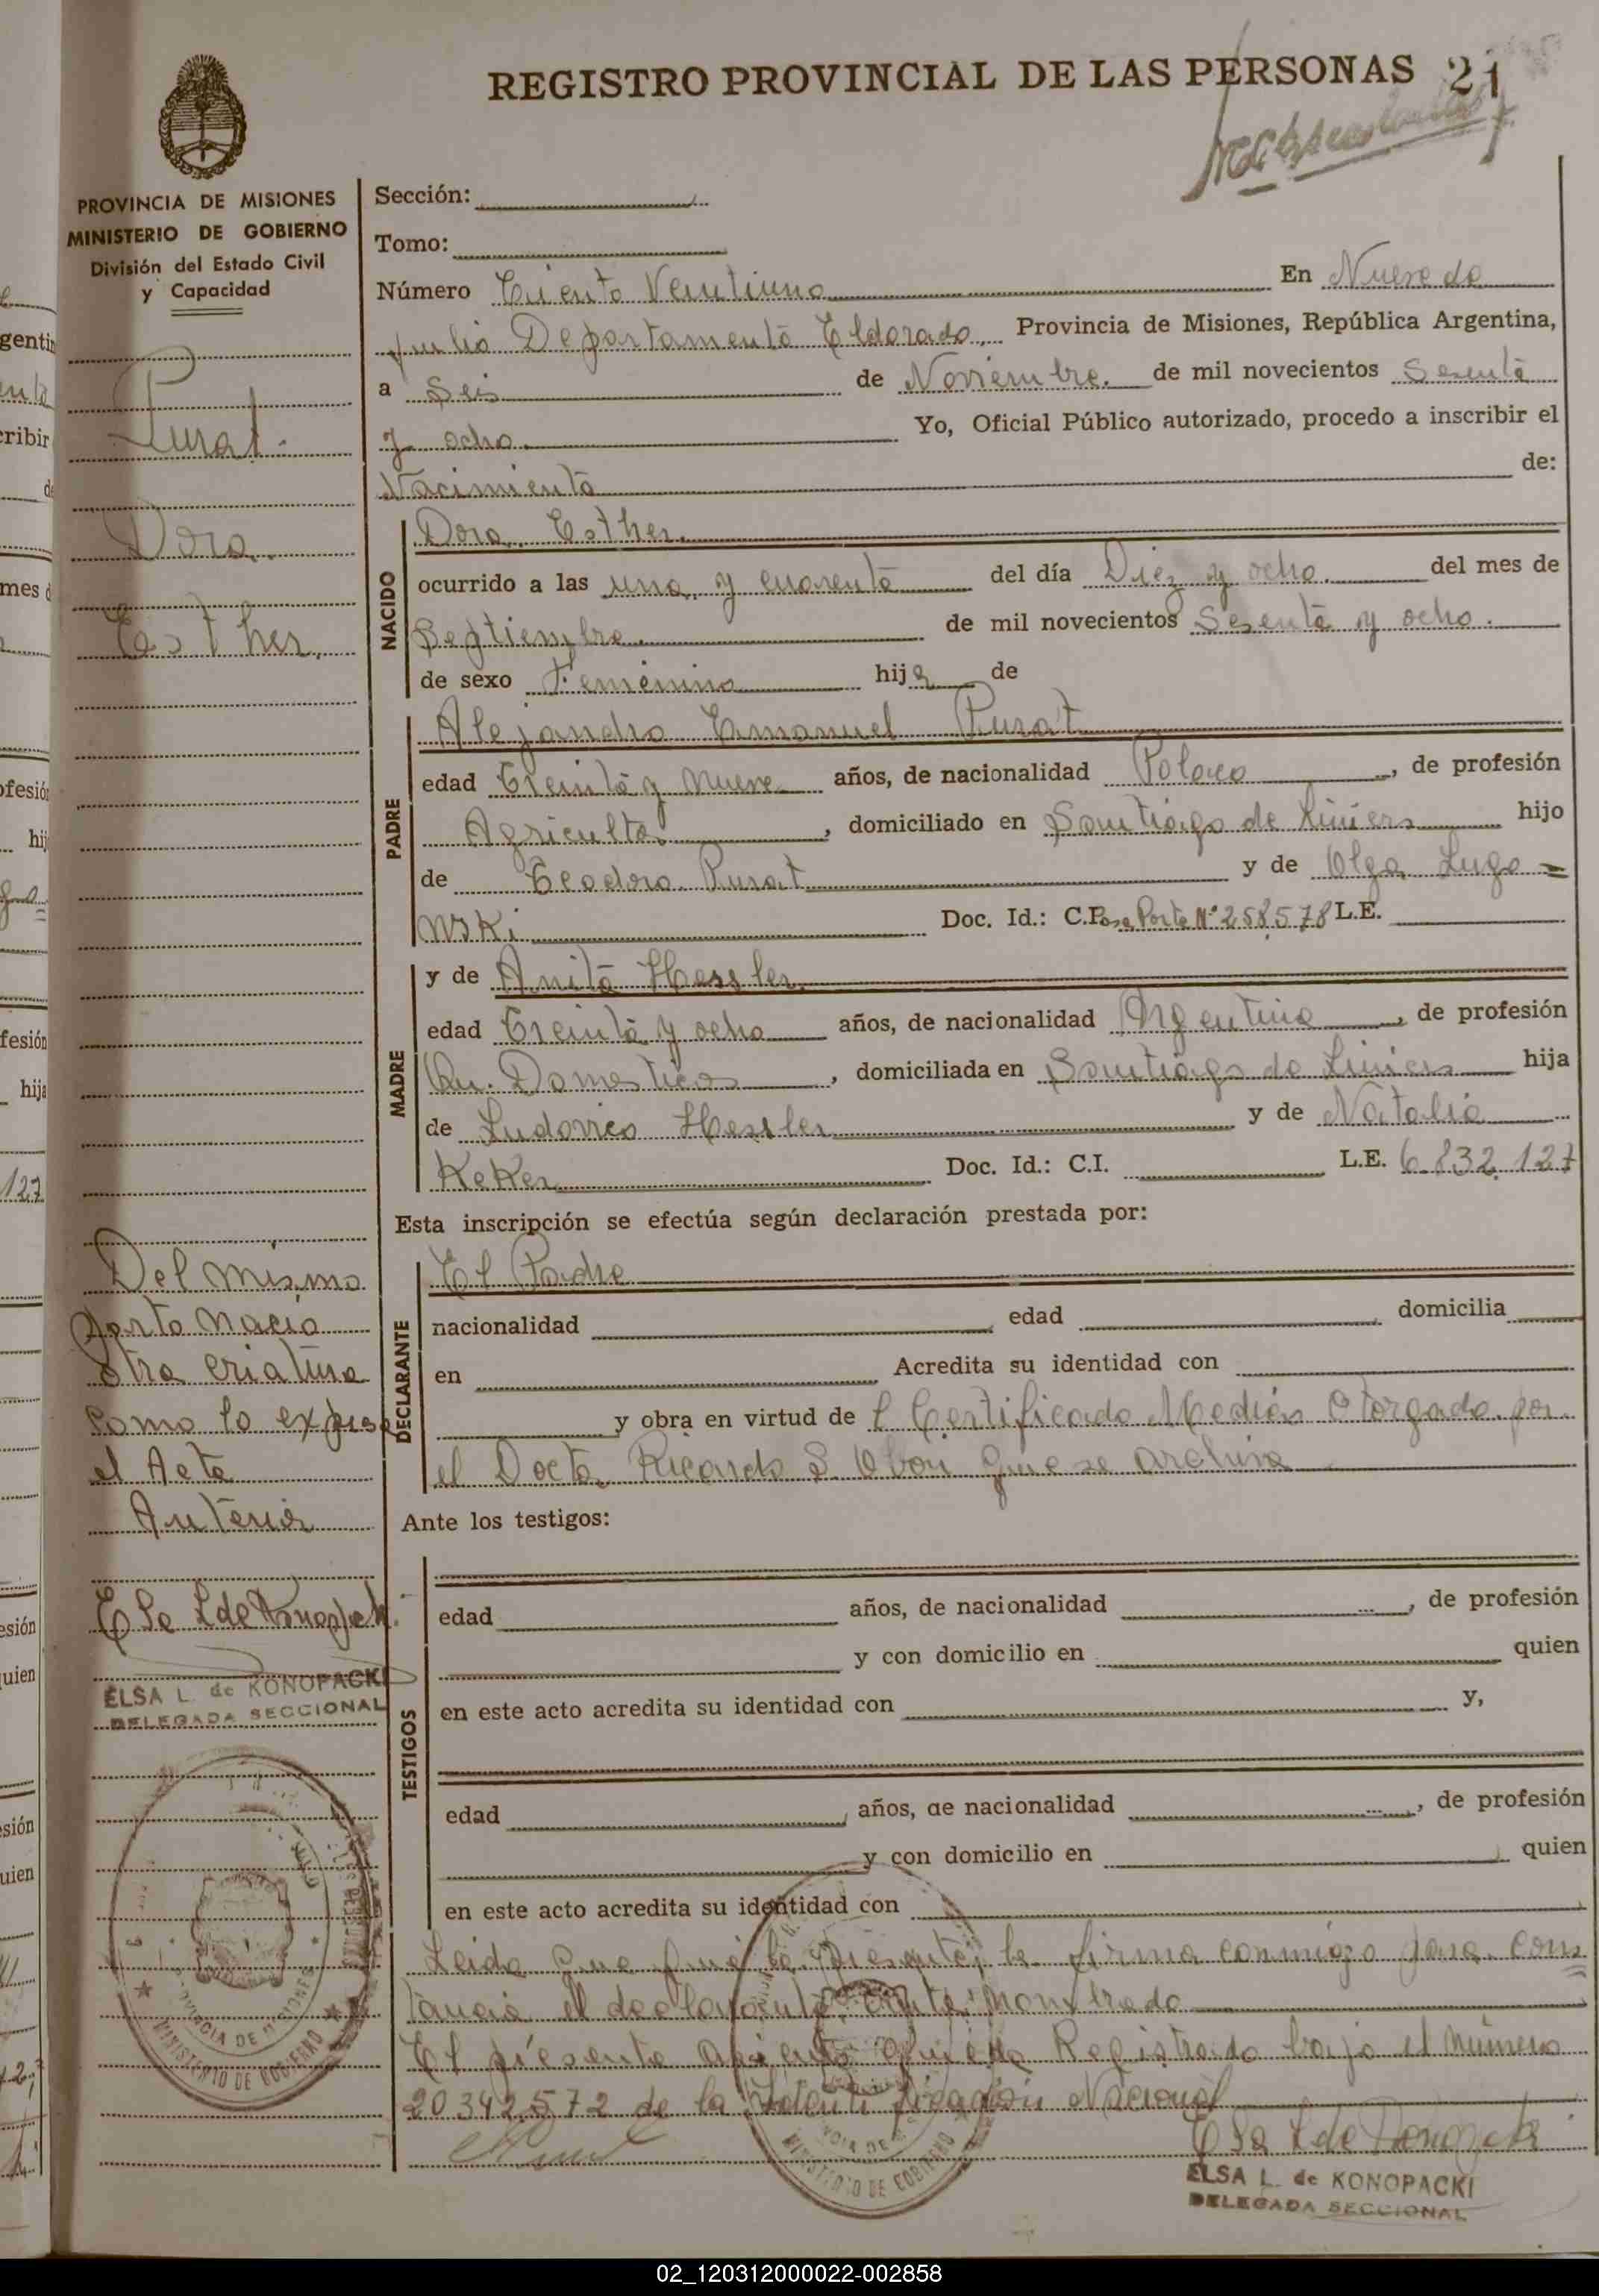 REGISTRO PROVINCIAL DE LAS PERSONAS 21
PROVINCIA DE MISIONES
MINISTERIO DE GOBIERNO
División del Estado Civil
y Capacidad
Purat.
Dora.
Esther.
Sección:
Tomo:
Número Ciento Veintiuno En Nueve de
Julio Departamento Eldorado, Provincia de Misiones, República Argentina,
a Seis de Noviembre. de mil novecientos Sesenta
y ocho. Yo, Oficial Público autorizado, procedo a inscribir el
Nacimiento de:
NACIDO
Dora Esther.
ocurrido a las una y cuarenta del día Diez y ocho. del mes de
Septiembre. de mil novecientos Sesenta y ocho.
de sexo Femenino hija de
PADRE
Alejandro Emanuel Purat
edad Treinta y nueve años, de nacionalidad Polaco, de profesión
Agricultor, domiciliado en Santiago de Liniers hijo
de Teodoro Purat y de Olga Lugo=
wski Doc. Id.: C.Pasa Porte Nº 258.578 L.E.
MADRE
y de Anita Hessler
edad Treinta y ocho años, de nacionalidad Argentina, de profesión
Qu. Domesticos, domiciliada en Santiago de Liniers hija
de Ludovico Hessler y de Natalia
Keker Doc. Id.: C.I. L.E. 6.832.127
Esta inscripción se efectúa según declaración prestada por:
DECLARANTE
El Padre
nacionalidad edad domicilia
en Acredita su identidad con
y obra en virtud de l Certificado Medico Otorgado por
el Doctor Ricardo S. Obon que se archiva
Del mismo
parto nacio
otra criatura
como lo expresa
el Acta
Anterior
Ante los testigos:
TESTIGOS
edad años, de nacionalidad , de profesión
y con domicilio en quien
en este acto acredita su identidad con y,
edad años, de nacionalidad , de profesión
y con domicilio en quien
en este acto acredita su identidad con
Elsa L de Konopacki
ELSA L. de KONOPACKI
DELEGADA SECCIONAL
PROVINCIA DE MISIONES
MINISTERIO DE GOBIERNO
Leida que fué la presente, la firma conmigo para cons
tancia el declarante ante nombrado
El presente asiento queda Registrado bajo el número
20.342.572 de la Identificación Nacional
Elsa L de Konopacki
MINISTERIO DE GOBIERNO
ELSA L. de KONOPACKI
DELEGADA SECCIONAL
02_120312000022-002858